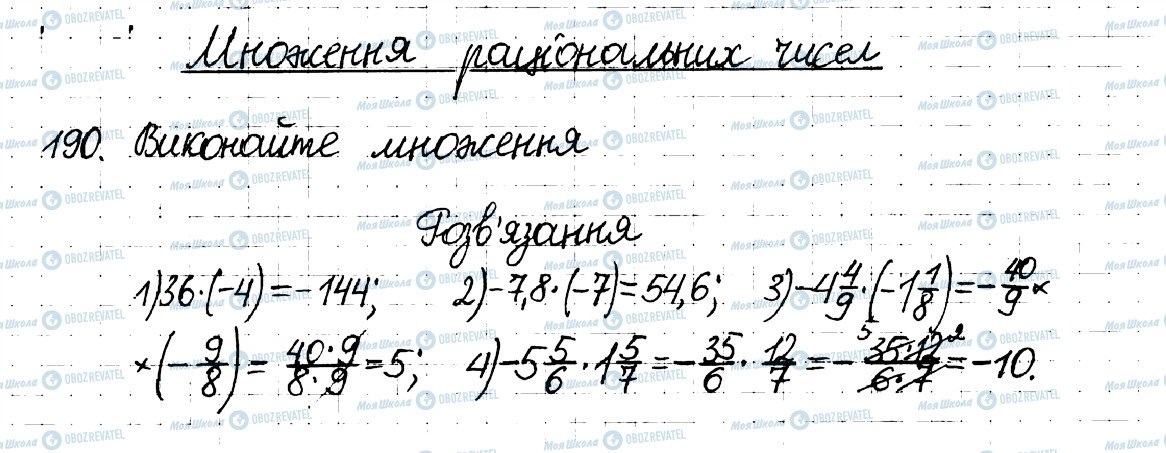 Множення раціональних чисел
190. Виконайте множення
Розв'язання
1) 36·(-4) = -144; 2) -7,8·(-7) = 54,6; 3) -4 4/9·(-1 1/8) = -40/9 ×
×(-9/8) = 40·9/8·9 = 5; 4) -5 5/6·1 5/7 = -35/6·12/7 = -5 35·12 2/6·7 = -10.